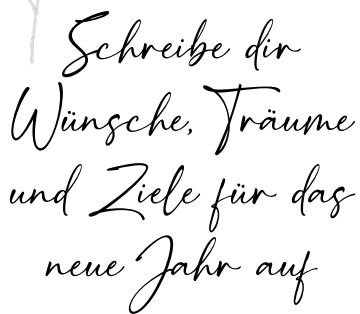 Schreibe dir
Wünsche, Träume
und Ziele für das
neue Jahr auf